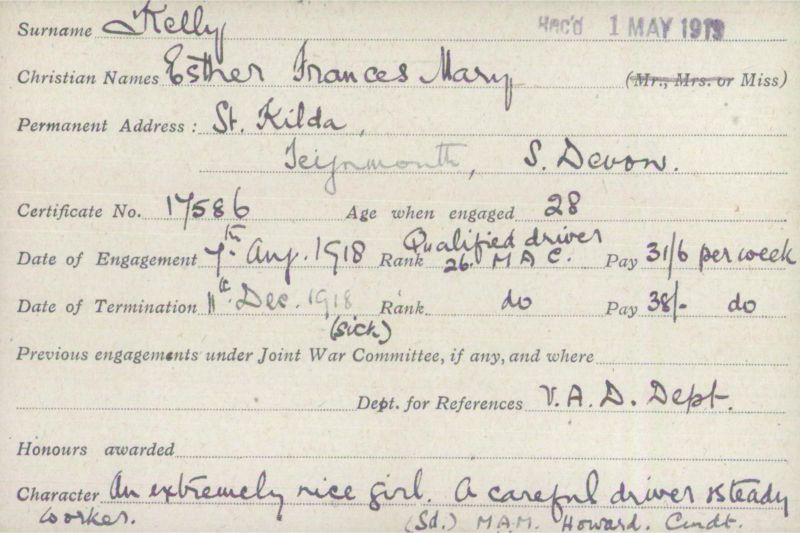 Surname Kelly Rec'd 1 MAY 1919
Christian Names Esther Frances Mary (Mr., Mrs. or Miss)
Permanent Address: St. Kilda,
Teignmouth, S. Devon.
Certificate No. 17586 Age when engaged 28
Date of Engagement 7th Aug. 1918 Rank Qualified driver 26. M A C. Pay 31/6 per week
Date of Termination 11th Dec. 1918 (Sick) Rank do Pay 38/- do
Previous engagements under Joint War Committee, if any, and where
Dept. for References V.A.D. Dept.
Honours awarded
Character An extremely nice girl. A careful driver & steady
worker. (Sd.) M.A.M. Howard. Cmdt.